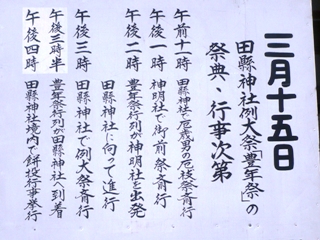 三月十五日
田縣神社例大祭「豊年祭」の
祭典・行事次第
午前十一時 田縣神社で厄歳男の厄祓祭斉行
午後一時 神明社で御前祭斉行
午後二時 豊年祭行列が神明社を出発
田縣神社に向って進行
午後三時 田縣神社で例大祭斉行
午後三時半 豊年祭行列が田縣神社へ到着
午後四時 田縣神社境内で餅投行事挙行